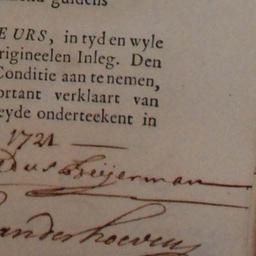 guldens
EURS, in tyd en wyle
rigineelen Inleg. Den
Conditie aan te nemen,
ortant verklaart van
eyde onderteekent in
1721
dus Breijerman
anderhoeven